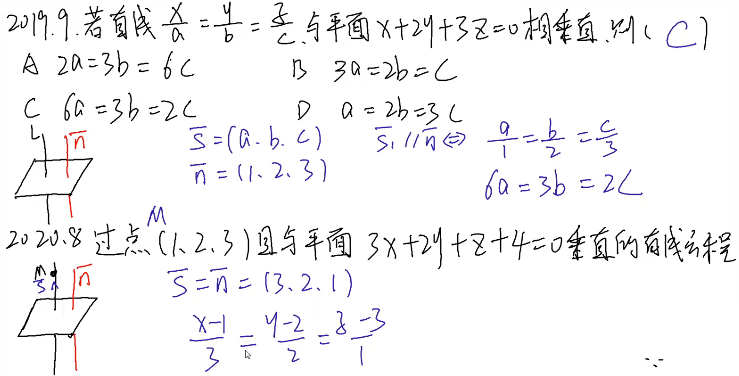 2019.9.若直线 x/a = y/b = z/c 与平面 x+2y+3z=0相垂直,则( C )
A 2a=3b=6c B 3a=2b=c
C 6a=3b=2c D a=2b=3c
L n̄ s̄=(a.b.c) s̄//n̄⇔ a/1 = b/2 = c/3
n̄=(1.2.3) 6a=3b=2c
M
2020.8 过点(1.2.3)且与平面 3x+2y+z+4=0垂直的直线方程
M s̄ n̄ s̄=n̄=(3.2.1)
(x-1)/3 = (y-2)/2 = (z-3)/1